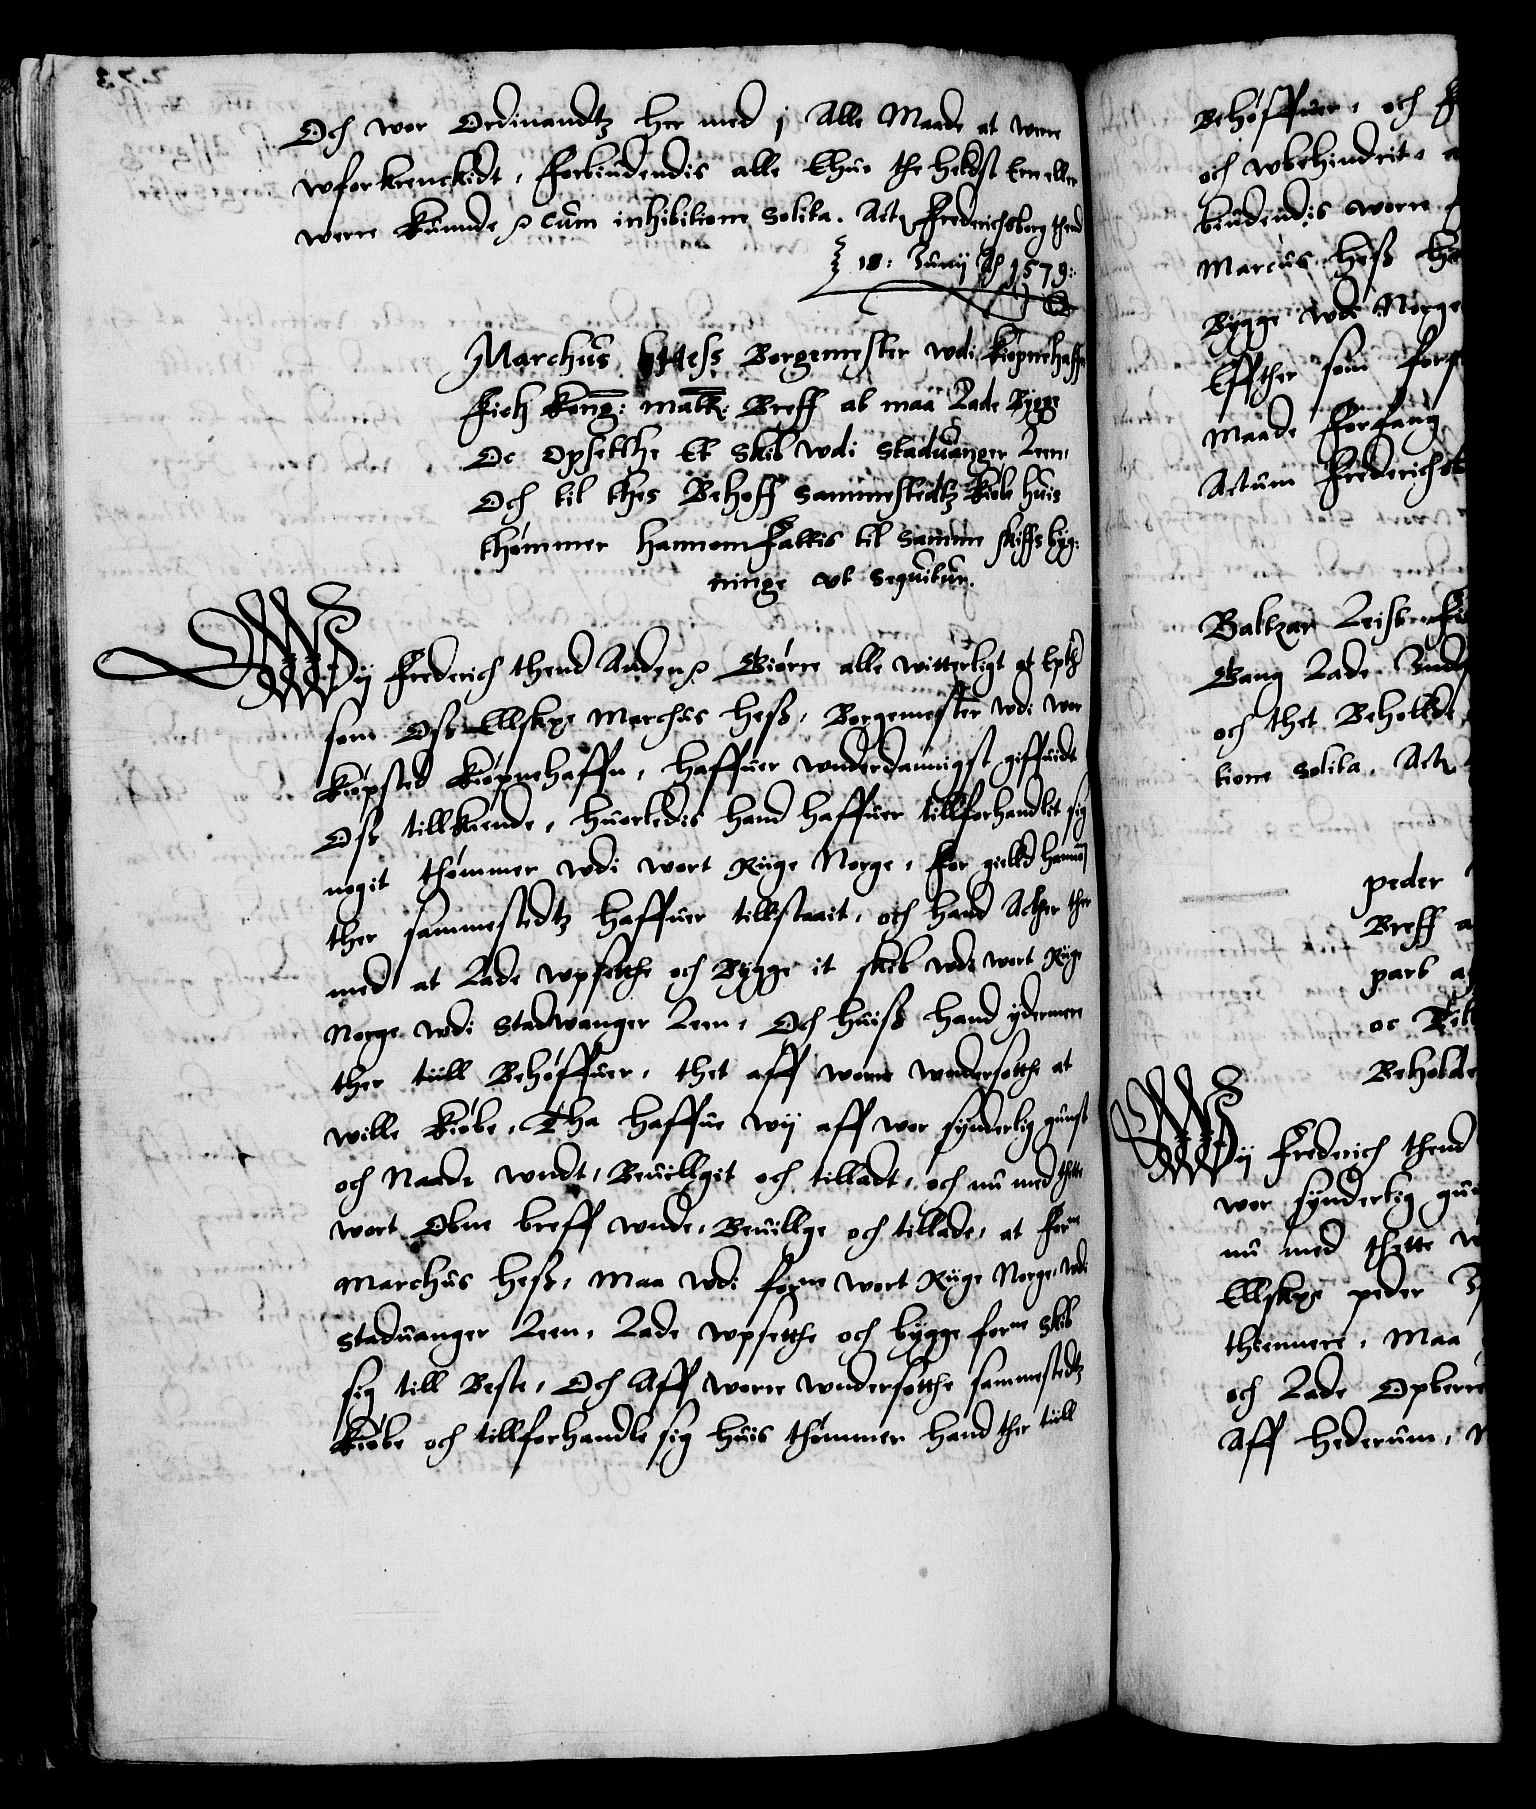 Och wor Ordinandtz her med j Alle Maade at were
wforkrenckidt, Forbiudendis alle Ehuo the heldst Ere eller
were kunde ꝛ Cum inhibitione solita. Act Frederichsborg thend
18: Junij Aꝰ 1579:
Marchus Hess Borgemester wdi kiøpnehaffn
Fich Kong: Matt: Breff at maa Lade Bygge
Oc Opsetthe Et Skib wdi Staduanger Leen,
Och til thes Behoff sammestedtz kiøbe huis
thømmer hannom Fattis til samme skiffs byg:
ninge vt sequitur.
Wij Frederich thend Anden ꝛ Giørre alle witterligt at Epth
som Oss Elskꝛ Marchus Hess, Borgemester wdi wor
kiøpsted kiøpnehaffn, haffuer wnderdannigst giffuidt
Oss tillkiende, huorledis hand haffuer tillforhandlit sig
nogit thømmer wdi wort Riige Norge, for gield hannom
ther sammestedtz haffuer tillstaait, och hand Acther ther
med at Lade wpsetthe och Bygge it skib wdi wort Riige
Norge wdi Stadwanger Leen, Och huiss hand ydermere
ther tiill Behøffuer, thet aff worre wndersotthe at
wille kiøbe, Tha haffue wij aff wor synderlig gunst
och Naade wndt, Beuillgit och tilladt, och nu med thette
wort Obne breff wnde, Beuillge och tillade, at forne
Marchus Hess, Maa wdi forne wort Riige Norge, wdi
Staduanger Leen, Lade wpsetthe och bygge forne Skib
sig till Beste, Och Aff worre wndersotthe sammestedtz
kiøbe och tillforhandle sig huis thømmer hand ther tiill
Behøffuer, och
och wbehindrit,
biudendis worre
Marcus Hess
Bygge wdi Norge
Effther som
Maade Forfang
Actum Frederichsb
Baltzar
Gang Lade
och thet Beholde
tione solita. Act
peder
Breff
part
oc
Beholde
Wij Frederich thend
wor synderlig gun
nu med thette
Elskꝛ peder
thiennere, Maa
och Lade Opberre
Aff hederum,